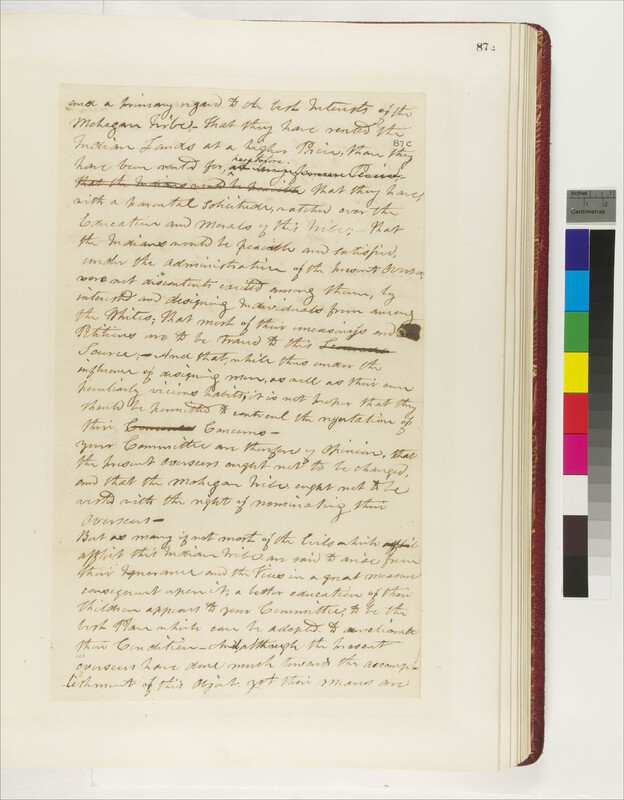 87c
and a primary regard to the best Interests of the
Mohegan Tribe,- That they have rented the
87c
Indian Lands at a higher Price, than they
have been rented for, heretofore.
that the Indians would be peacible That they have,
with a parental solicitude, watched over the
Education and Morals of this Tribe;- That
the Indians would be peacible and satisfied,
under the administration of the present Overseers,
were not discontents excited among them, by
interested and designing Individuals from among
the Whites; That most of their uneasiness and
Petitions are to be traced to this
Source;- And that, while thus under the
influence of designing men, as well as their own
peculiarly vicious habits, it is not proper that they
should be permitted to controul the regulation of
their Concerns-
Your Committee are therefore of Opinion, that
the present overseers ought not to be changed,
and that the Mohegan Tribe ought not to be
vested with the right of nominating their
Overseers-
But as many if not most of the Evils which
afflict this Indian Tribe are said to arise from
their Ignorance and the Vices in a great measure
consequent upon it, a better education of their
Children appears to your Committee, to be the
best Plan which can be adopted to ameliorate
their Condition- although the present
overseers have done much towards the accomp-
lishment of this Object yet their means are
inches
1 2
Centimetres